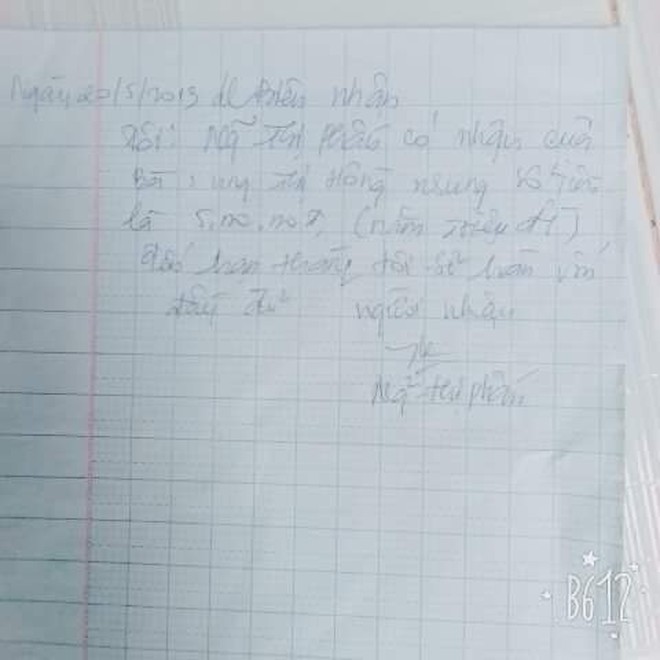 Ngày 20/5/2013 Biên nhận
Tôi: Thị Phấn có nhận của
Bà: ung Thị Hồng nhung số tiền
là 5,000,000đ, (năm triệu đ)
hạn tháng tôi sẽ hoàn vốn
đầy đủ người nhận
thị phấn
B612